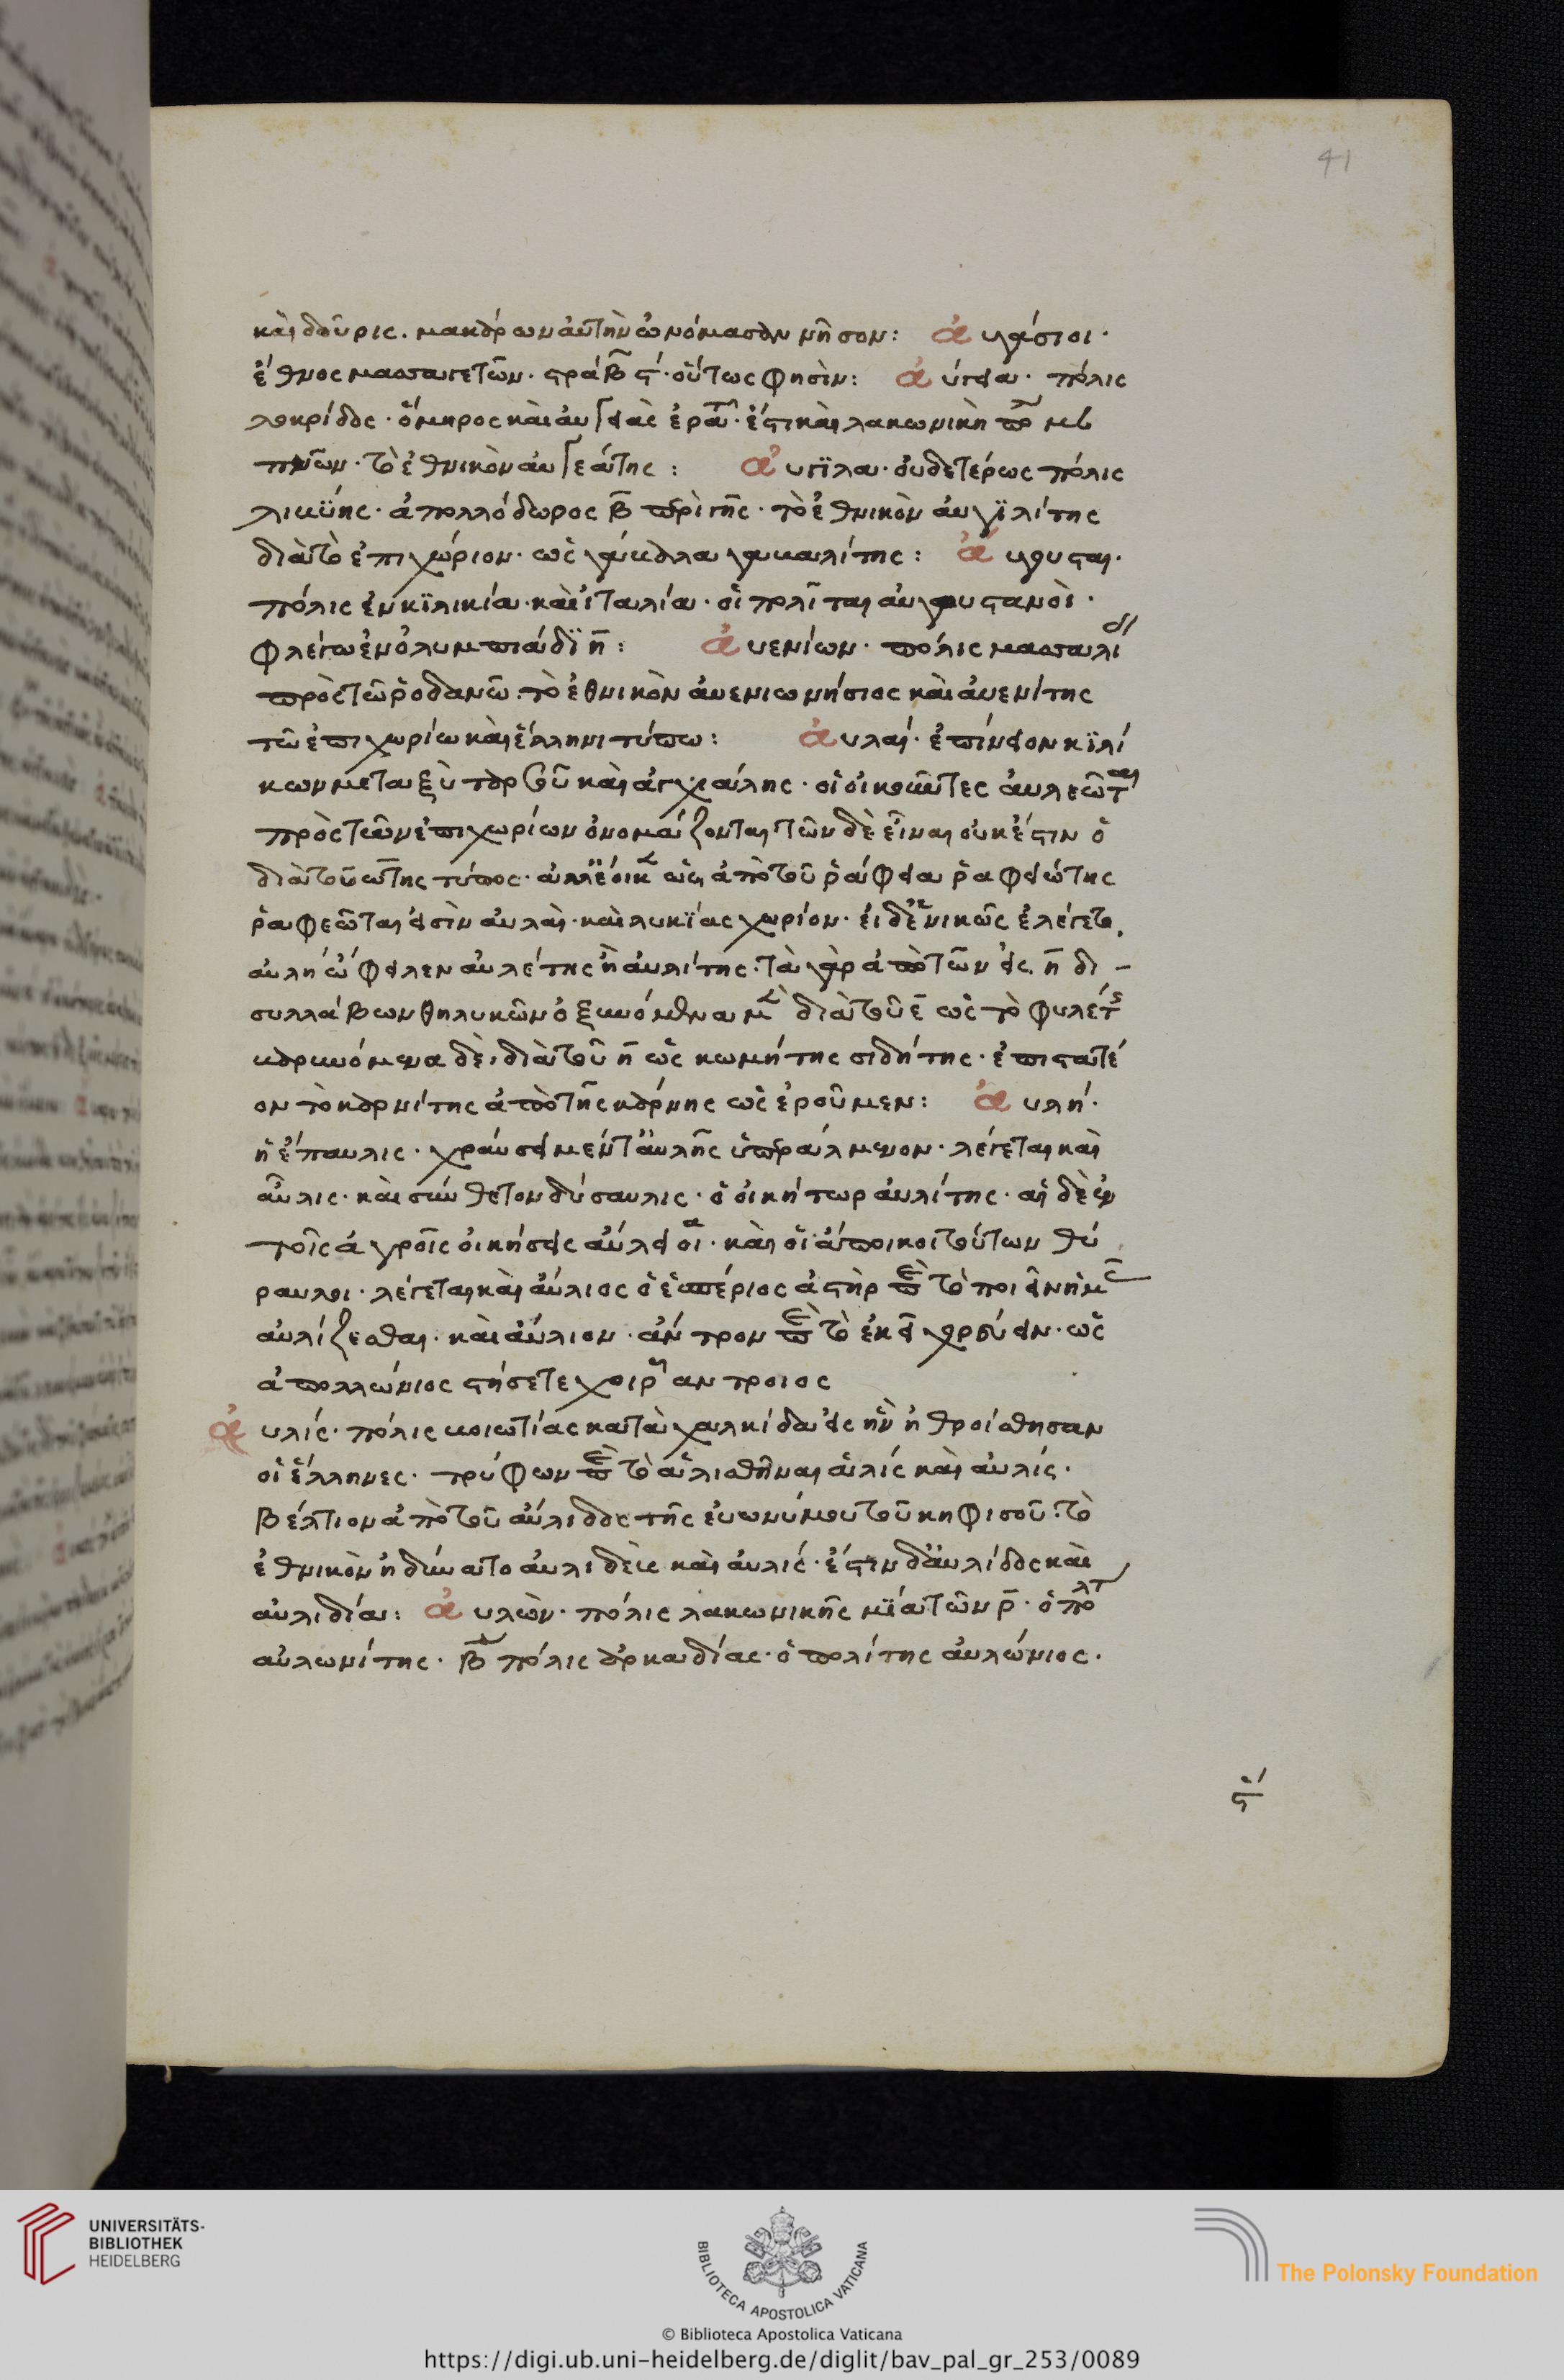 41
καὶ δοῦρις. μακάρων αὐτὴν ὠνόμασαν νῆσον: αὐγάσιοι·
ἔθνος μασσαγετῶν· στράβ ϛ· οὕτως φησίν: αὔγεια· πόλις
λοκρίδος· ὅμηρος καὶ αὐγειὰς ἐρα· ἔστι καὶ λακωνικὴ
τὸ ἐθνικὸν αὐγεάτης: αὔγιλα· οὐδετέρως πόλις
λιβύης· ἀπολλόδωρος β̄ περὶ γῆς· τὸ ἐθνικὸν αὐγιλίτης
διὰ τὸ ἐπιχώριον· ὡς
πόλις ἐν κιλικία· καὶ ἰταλία· οἱ πολῖται αὐγουστανοὶ·
φλέγω ἐν ὀλυμπιάδι η̄: αὐενίων· πόλις μασσαλι
πρὸς τῶ ῥοδανῶ· τὸ ἐθνικὸν αὐενιωνήσιος καὶ αὐενίτης
τῶ ἐπιχωρίω καὶ ἕλληνι τύπω: αὐλαί· ἐπίνειον κιλί
κων μεταξὺ ταρσοῦ καὶ ἀγχιάλης· οἱ οἰκοῦντες αὐλεῶται
πρὸς τῶν ἐπιχωρίων ὀνομάζονται τῶν δὲ εἶναι οὐκ ἔστιν ὁ
διὰ τοῦ ωτης τύπος· ἀλλ' ἔοικ ὡς ἀπὸ τοῦ ῥάφεια ῥαφειώτης
ῥαφεῶται εἰσὶν αὐλαὶ· καὶ λυκίας χωρίον· εἰ δ' ἑνικῶς ἐλέγετο
αὐλὴ ὤφειλεν αὐλέτης ἢ αὐλίτης· τὰ γὰρ ἀπὸ τῶν εἰς η̄ δι
συλλάβων θηλυκῶν ὀξυνόμενα μ διὰ τοῦ ε̄ ὡς τὸ φυλέτης
βαρυνόμενα δὲ, διὰ τοῦ η̄ ὡς κωμήτης σιδήτης· ἐπιστατέ
ον τὸ καρνίτης ἀπὸ τῆς κάρνης ὡς ἐροῦμεν: αὐλή·
ἡ ἔπαυλις· χραύση μέν τ' αὐλῆς ὑπεράλμενον· λέγεται καὶ
αὖλις· καὶ σύνθετον δύσαυλις· ὁ οἰκήτωρ αὐλίτης· αἱ δὲ ἐν
τοῖς ἀγροῖς οἰκήσεις αὔλειοι· καὶ οἱ ἄποικοι τούτων θύ
ραυλοι· λέγεται καὶ αὔλιος ὁ ἑσπέριος ἀστὴρ παρὰ τὸ ποιεῖν ἡμᾶς
αὐλίζεσθαι· καὶ αὔλιον· ἄντρον παρὰ τὸ ἐκεῖ χορεύειν· ὡς
ἀπολλώνιος
αὐλίς· πόλις βοιωτίας κατὰ χαλκίδα εἰς ἣν ἠθροίσθησαν
οἱ ἕλληνες· τρύφων παρὰ τὸ ἁλισθῆναι ἁλὶς καὶ αὐλίς·
βέλτιον ἀπὸ τοῦ αὔλιδος τῆς εὐωνύμου τοῦ κηφισοῦ· τὸ
ἐθνικὸν ἠδύνατο αὐλιδεὺς καὶ αὐλίς· ἔστιν δ' αὐλίδος καὶ
αὐλιδία: αὐλὼν· πόλις λακωνικῆς μία τῶν ρ̄· ὁ πολτ
αὐλωνίτης· β πόλις ἀρκαδίας· ὁ πολίτης αὐλώνιος·
UNIVERSITÄTS-
BIBLIOTHEK
HEIDELBERG
BIBLIOTECA APOSTOLICA VATICANA
The Polonsky Foundation
© Biblioteca Apostolica Vaticana
https://digi.ub.uni-heidelberg.de/diglit/bav_pal_gr_253/0089